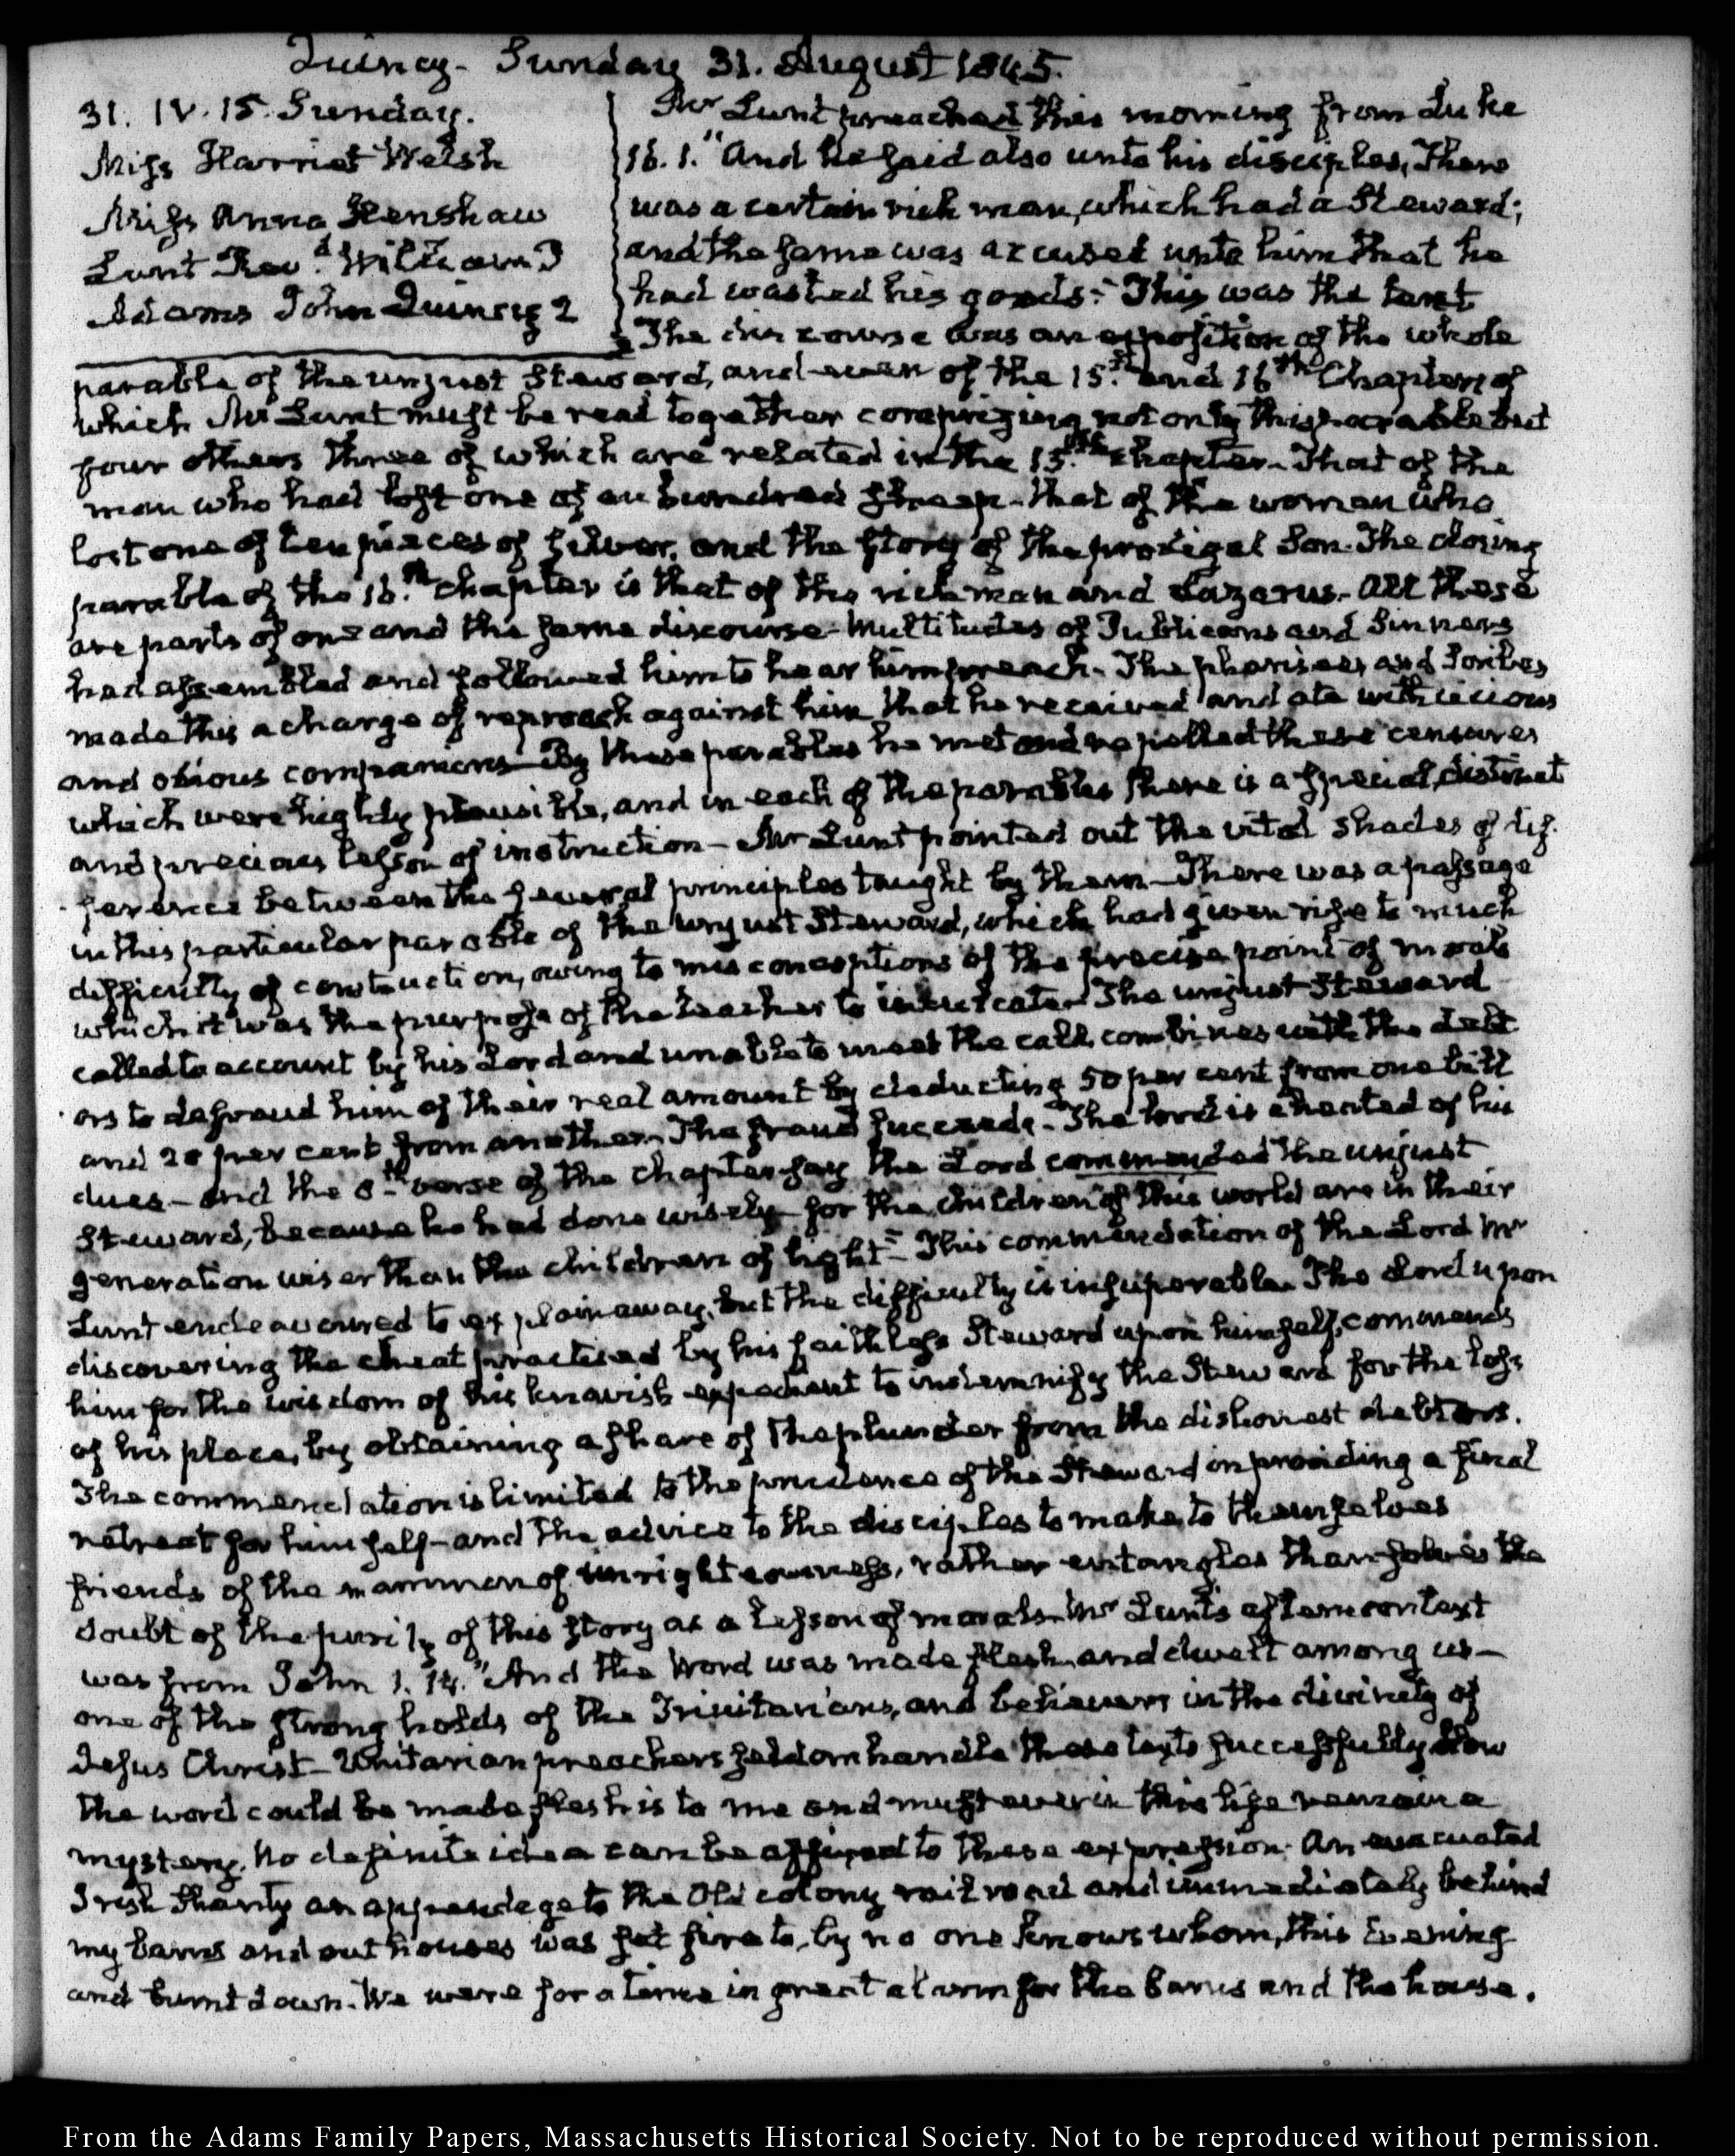 Quincy - Sunday 31. August 1845.
31. IV. 15. Sunday.
Miss Harriet Welsh
Miss Anna Henshaw
Lunt Rev.d William P
Adams John Quincy 2
Mr Lunt preached this morning from Luke
16. 1. "And he said also unto his disciples, There
was a certain rich man, which had a Steward;
and the same was accused unto him that he
had wasted his goods." This was the text
The discourse was an exposition of the whole
parable of the unjust Steward, and even of the 15.th and 16th Chapters of
which Mr Lunt must be read together comprizing not only this parable but
four others three of which are related in the 15.th chapter - That of the
man who had lost one of an hundred sheep - that of the woman who
lost one of ten pieces of silver, and the story of the prodigal Son. The closing
parable of the 16.th chapter is that of the rich man and Lazarus. All these
are parts of one and the same discourse - Multitudes of Publicans and Sinners
had assembled and followed him to hear him preach - The pharisees and Scribes
made this a charge of reproach against him that he received and ate with vicious
and odious companions - By these parables he met and repelled these censures
which were highly plausible, and in each of the parables there is a special, distinct
and precious lesson of instruction - Mr Lunt pointed out the vital shades of dif-
ference between the general principles taught by them - There was a passage
in this particular parable of the unjust Steward, which had given rise to much
difficulty of construction, owing to misconceptions of the precise point of morals
which it was the purpose of the teacher to inculcate - The unjust Steward
called to account by his Lord and unable to meet the call, combines with the debt-
ors to defraud him of their real amount by deducting 50 per cent from one bill
and 20 per cent from another. The fraud succeeds - The lord is cheated of his
dues - and the 8th verse of the chapter says the Lord commended the unjust
Steward, because he had done wisely - for the children of this world are in their
generation wiser than the children of light - This commendation of the Lord Mr
Lunt endeavoured to explain away, but the difficulty is insuperable. The Lord upon
discovering the cheat practised by his faithless Steward upon himself, commends
him for the wisdom of his knavish expedient to indemnify the Steward for the loss
of his place, by obtaining a share of the plunder from the dishonest debtors.
The commendation is limited to the prudence of the Steward in providing a final
retreat for himself - and the advice to the disciples to make to themselves
friends of the mammon of unrighteousness, rather entangles than solves the
doubt of the purity of this story as a lesson of morals. Mr Lunt's afternoon text
was from John 1. 14. "And the Word was made flesh and dwelt among us -
one of the strong holds of the Trinitarians, and believers in the divinity of
Jesus Christ - Unitarian preachers seldom handle these texts successfully How
the word could be made flesh is to me and must ever in this life remain a
mystery. No definite idea can be affixed to these expression. An evacuated
Irish Shanty an appendage to the Old colony rail road and immediately behind
my barns and out houses was set fire to, by no one knows whom, this Evening
and burnt down. We were for a time in great alarm for the barns and the house.
From the Adams Family Papers, Massachusetts Historical Society. Not to be reproduced without permission.